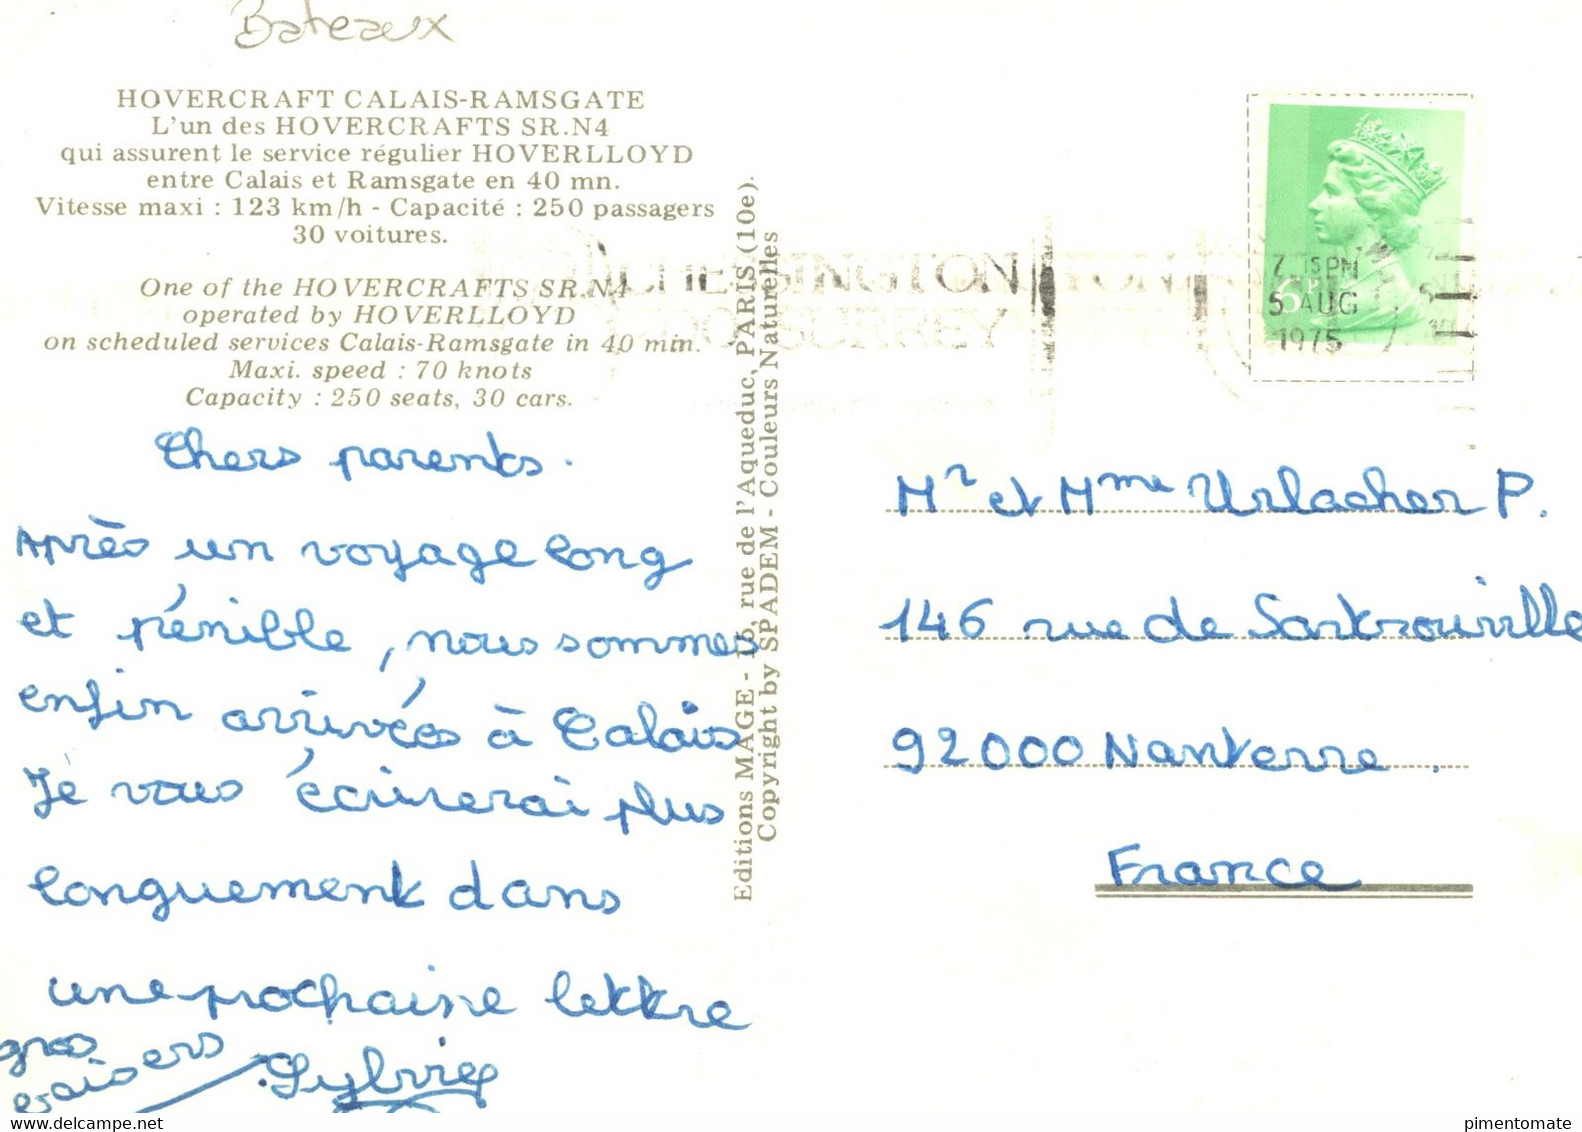 Bateaux
HOVERCRAFT CALAIS-RAMSGATE
L'un des HOVERCRAFTS SR.N4
qui assurent le service régulier HOVERLLOYD
entre Calais et Ramsgate en 40 mn.
Vitesse maxi : 123 km/h - Capacité : 250 passagers
30 voitures.
One of the HOVERCRAFTS SR.N4
operated by HOVERLLOYD
on scheduled services Calais-Ramsgate in 40 min.
Maxi. speed : 70 knots
Capacity : 250 seats, 30 cars.
Chers parents.
Après un voyage long
et pénible, nous sommes
enfin arrivées à Calais
Je vous écrirerai plus
longuement dans
une prochaine lettre
gros
baisers
Sylvie
Editions MAGE - 15, rue de l'Aqueduc, PARIS (10e).
Copyright by SPADEM - Couleurs Naturelles
CHESSINGTON
ZOO SURREY
6P
7 15 PM
5 AUG
1975
Mr et Mme Urlacher P.
146 rue de Sartrouville
92000 Nanterre.
France
pimentomate